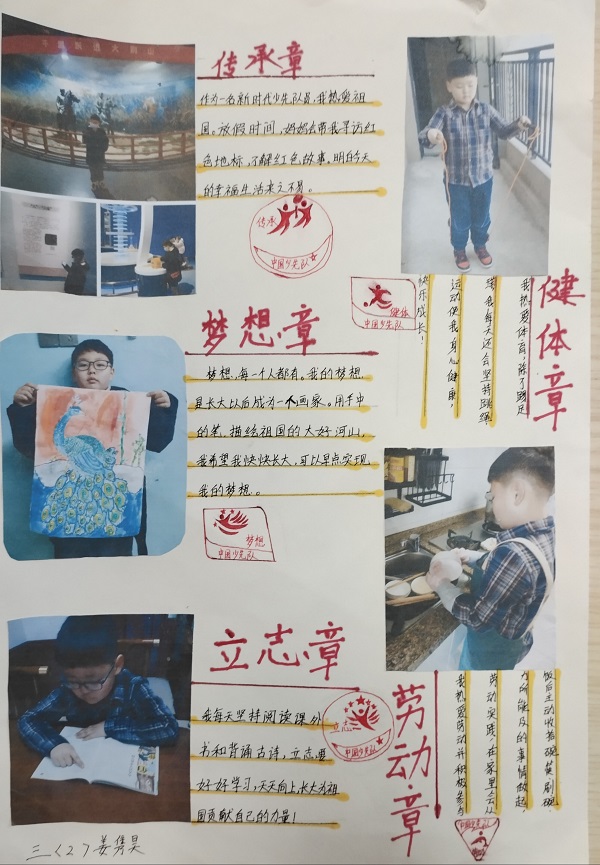 传承章
作为一名新时代少先队员,我热爱祖
国。放假时间,妈妈会带我寻访红
色地标,了解红色故事,明白今天
的幸福生活来之不易。
传承
中国少先队
健体章
我热爱体育,除了踢足
球,我每天还会坚持跳绳,
运动使我身心健康,
快乐成长!
健体
中国少先队
梦想章
梦想,每一个人都有。我的梦想
是长大以后成为一个画家。用手中
的笔,描绘祖国的大好河山,
我希望我快快长大,可以早点实现
我的梦想。
梦想
中国少先队
立志章
我每天坚持阅读课外
书和背诵古诗,立志要
好好学习,天天向上,长大为祖
国贡献自己的力量!
立志
中国少先队
劳动章
我热爱劳动并积极参与
劳动实践,在家里会从
力所能及的事情做起,
饭后主动收拾碗筷刷碗
中国少先队
三〈2〉姜隽昊